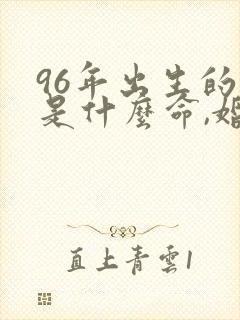 96年出生的
是什麼命,婚
直上青雲1